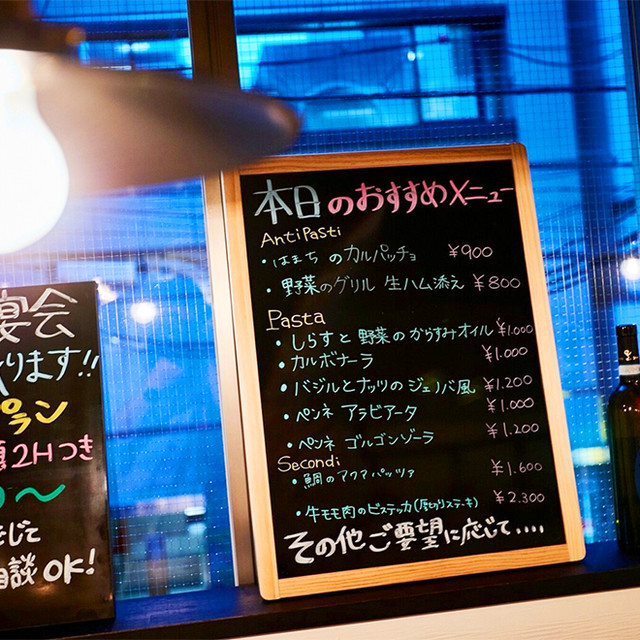 宴会
ります!!
プラン
題2Hつき
〜
じて
相談OK!
本日のおすすめメニュー
AntiPasti
・はまちのカルパッチョ ¥900
・野菜のグリル 生ハム添え ¥800
Pasta
・しらすと野菜のからすみオイル ¥1.000
・カルボナーラ ¥1.000
・バジルとナッツのジェノバ風 ¥1.200
・ペンネ アラビアータ ¥1.000
・ペンネ ゴルゴンゾーラ ¥1.200
Secondi
・鯛のアクアパッツァ ¥1.600
・牛モモ肉のビステッカ(厚切りステーキ) ¥2.300
その他ご要望に応じて....